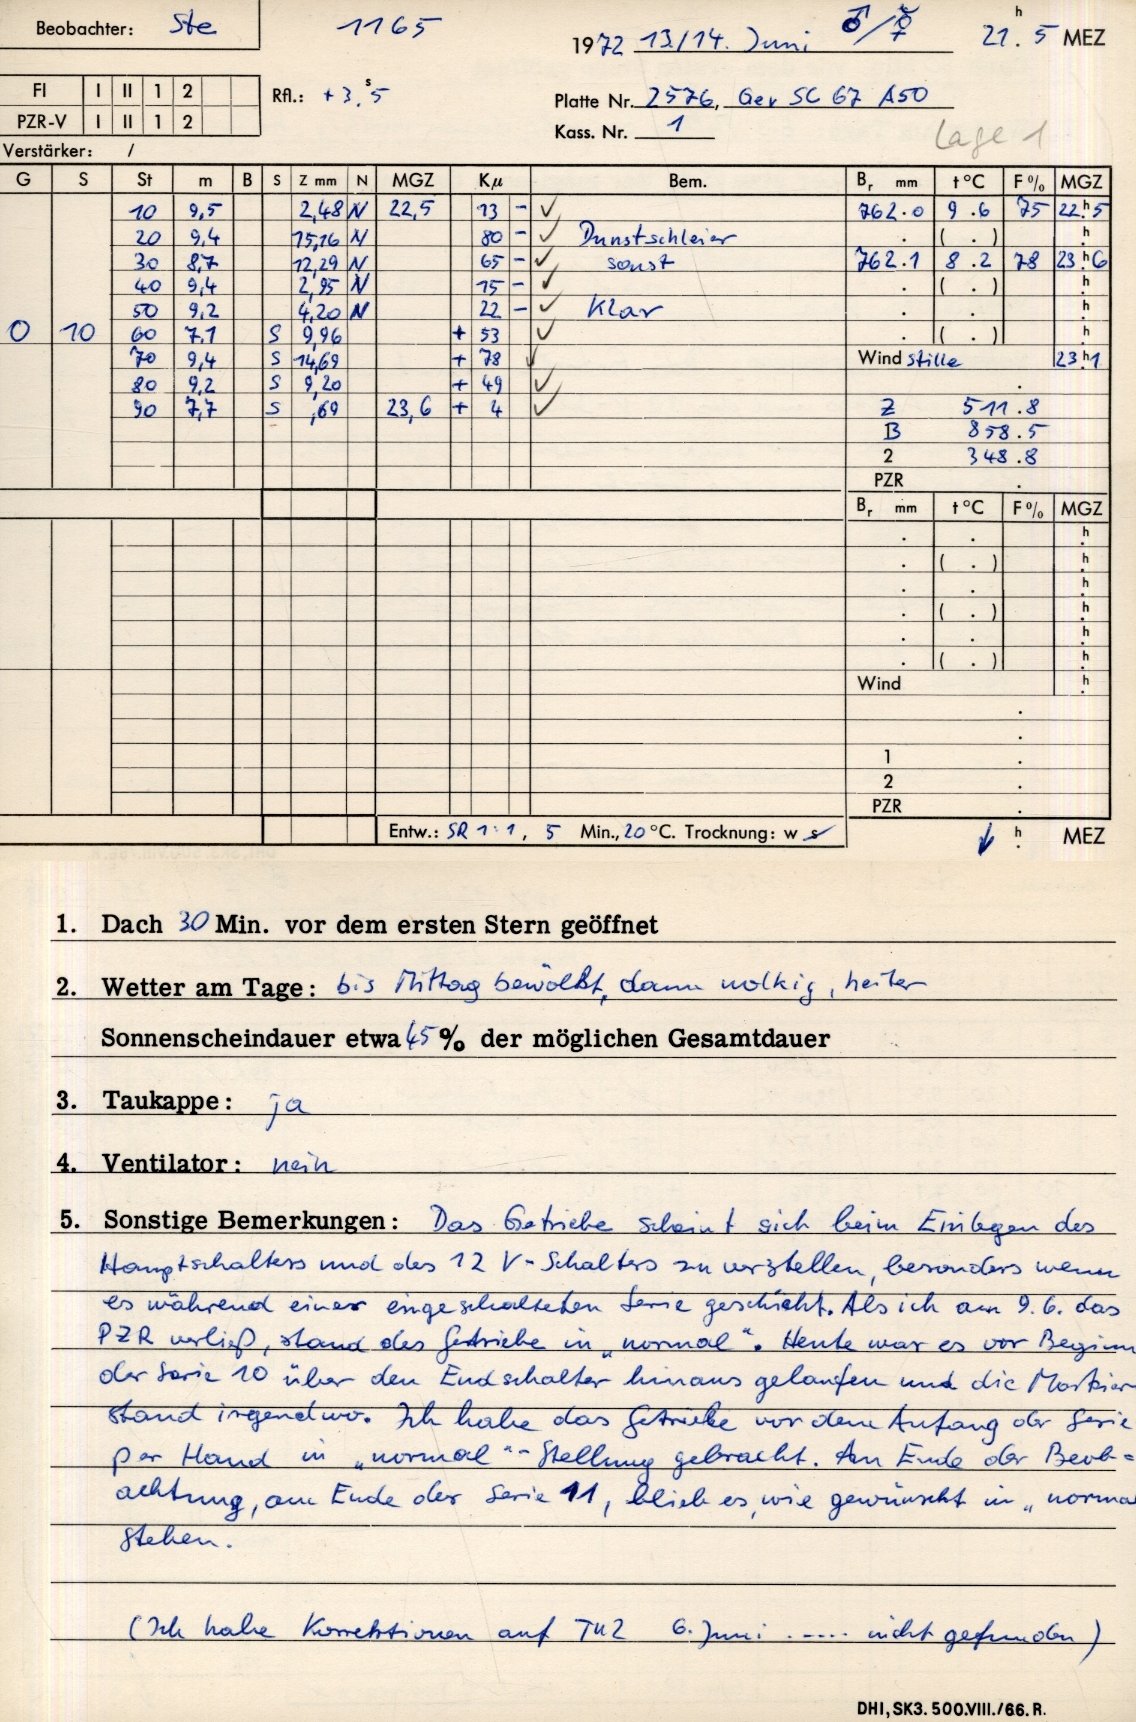 Beobachter: Ste 1165 1972 13./14. Juni ♂/☿ 21.ʰ5 MEZ
FI I II 1 2 Rfl.: +3,ˢ5 Platte Nr. 2576, Gev SC 67 A50
PZR-V I II 1 2 Kass. Nr. 1 Lage 1
Verstärker: /
G S St m B S Z mm N MGZ Kμ Bem. Bᵣ mm t°C F% MGZ
10 9,5 2,48 N 22,5 13 - ✓ 762.0 9.6 75 22.ʰ5
20 9,4 15,16 N 80 - ✓ Dunstschleier . ( . ) .ʰ
30 8,7 12,29 N 65 - ✓ sonst 762.1 8.2 78 23.ʰ6
40 9,4 2,95 N 15 - ✓ . ( . ) .ʰ
50 9,2 4,20 N 22 - ✓ Klar . . .ʰ
0 10 60 7,1 S 9,96 + 53 ✓ . ( . ) .ʰ
70 9,4 S 14,69 + 78 ✓ Wind stille 23.ʰ1
80 9,2 S 9,20 + 49 ✓ .
90 7,7 S ,69 23,6 + 4 ✓ Z 511.8
B 858.5
2 348.8
PZR .
Bᵣ mm t°C F% MGZ
. . .ʰ
. ( . ) .ʰ
. . .ʰ
. ( . ) .ʰ
. . .ʰ
. ( . ) .ʰ
Wind .ʰ
.
.
1 .
2 .
PZR .
Entw.: SR 1:1, 5 Min., 20 °C. Trocknung: w s ↓ .ʰ MEZ
1. Dach 30 Min. vor dem ersten Stern geöffnet
2. Wetter am Tage: bis Mittag bewölkt, dann wolkig, heiter
Sonnenscheindauer etwa 45 % der möglichen Gesamtdauer
3. Taukappe: ja
4. Ventilator: nein
5. Sonstige Bemerkungen: Das Getriebe scheint sich beim Einlegen des
Hauptschalters und des 12 V-Schalters zu verstellen, besonders wenn
es während einer eingeschalteten Serie geschieht. Als ich am 9.6. das
PZR verließ, stand das Getriebe in „normal". Heute war es vor Beginn
der Serie 10 über den Endschalter hinaus gelaufen und die Markier
stand irgendwo. Ich habe das Getriebe vor dem Anfang der Serie
per Hand in „normal"-Stellung gebracht. Am Ende der Beob=
achtung, am Ende der Serie 11, blieb es, wie gewünscht in „normal
stehen.
(Ich habe Korrektionen auf TUZ 6. Juni ..... nicht gefunden)
DHI, SK3. 500.VIII./66. R.